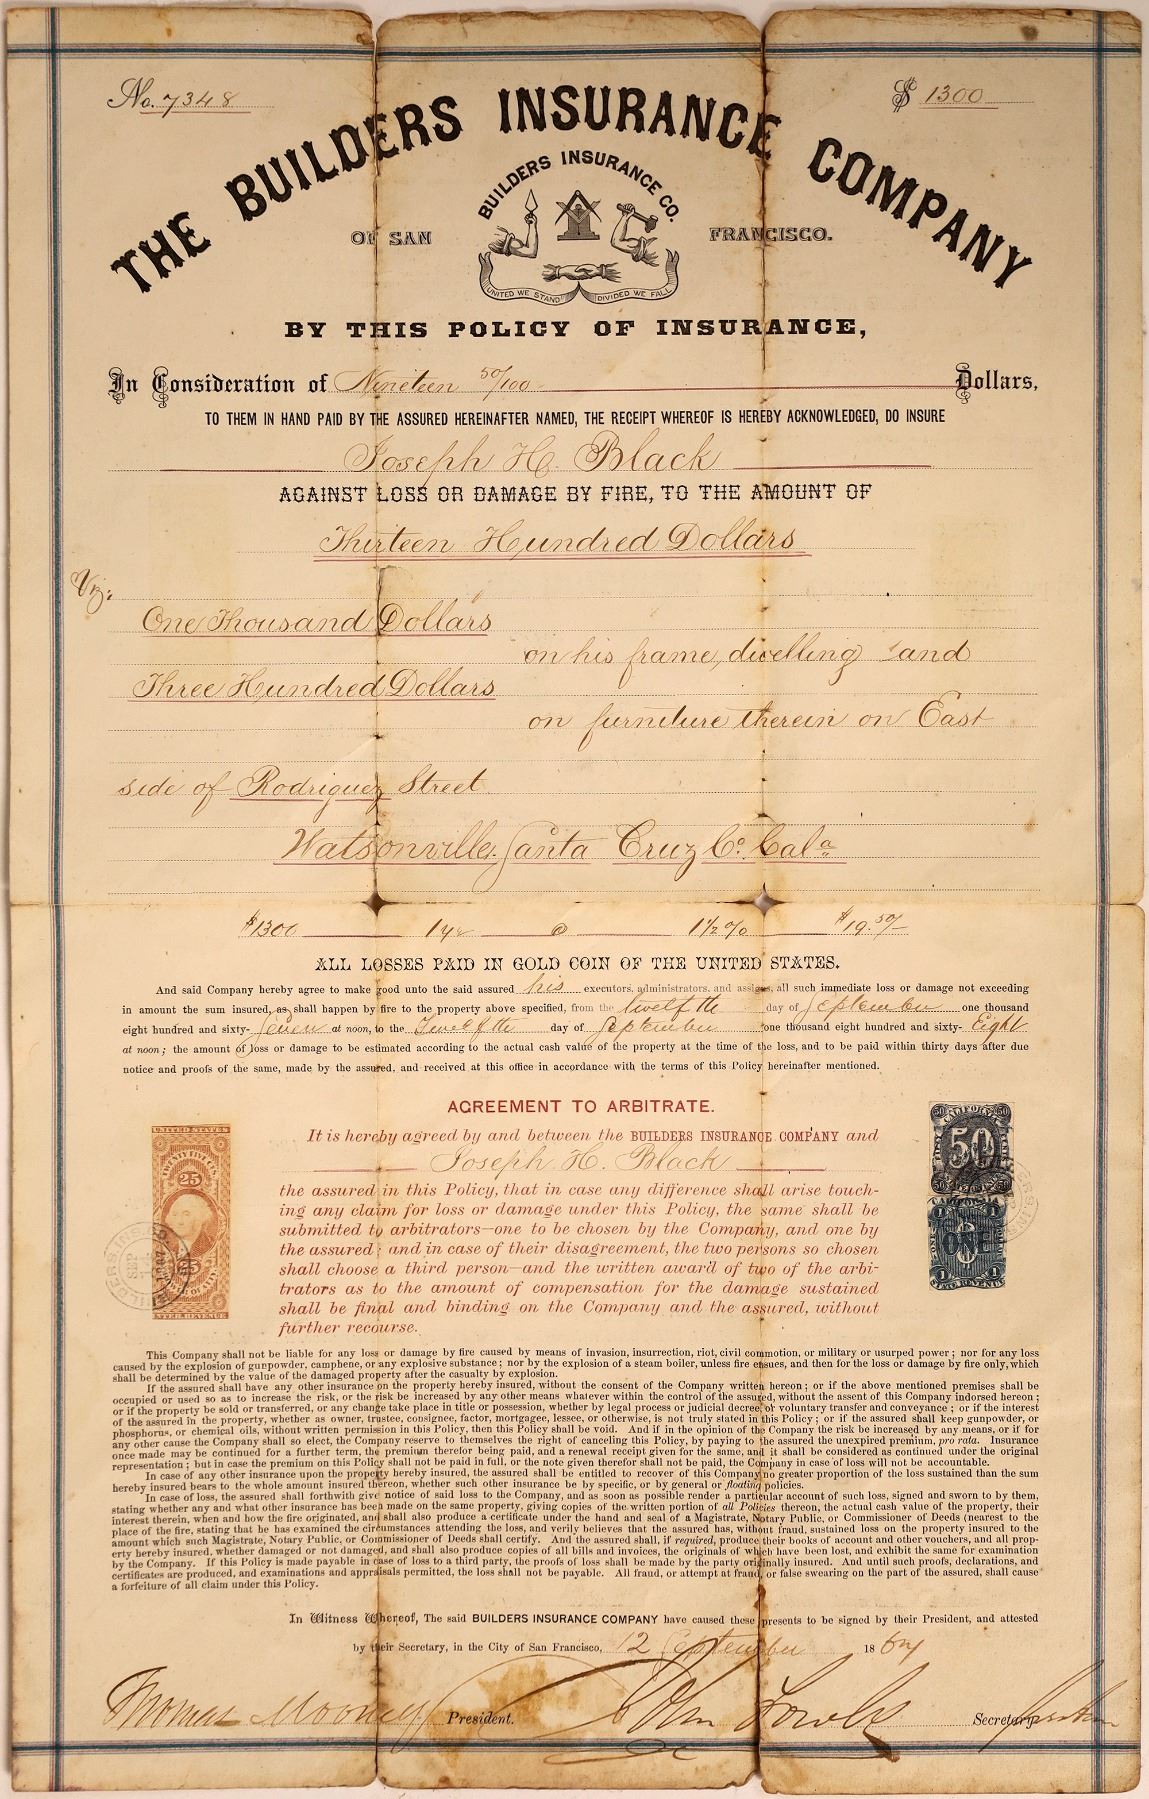 No. 7348
$ 1300
THE BUILDERS INSURANCE COMPANY
BUILDERS INSURANCE CO.
OF SAN FRANCISCO.
UNITED WE STAND DIVIDED WE FALL
BY THIS POLICY OF INSURANCE,
In Consideration of Nineteen 50/100 Dollars,
TO THEM IN HAND PAID BY THE ASSURED HEREINAFTER NAMED, THE RECEIPT WHEREOF IS HEREBY ACKNOWLEDGED, DO INSURE
Joseph H. Black
AGAINST LOSS OR DAMAGE BY FIRE, TO THE AMOUNT OF
Thirteen Hundred Dollars
Viz:
One Thousand Dollars
on his frame, dwelling and
Three Hundred Dollars
on furniture therein on East
side of Rodriguez Street
Watsonville, Santa Cruz Co. Cala
$1300 1 yr @ 1 1/2 % $19.50/
ALL LOSSES PAID IN GOLD COIN OF THE UNITED STATES.
And said Company hereby agree to make good unto the said assured his executors, administrators, and assigns, all such immediate loss or damage not exceeding
in amount the sum insured, as shall happen by fire to the property above specified, from the twelfth day of September one thousand
eight hundred and sixty- Seven at noon, to the Twelfth day of September one thousand eight hundred and sixty- Eight
at noon; the amount of loss or damage to be estimated according to the actual cash value of the property at the time of the loss, and to be paid within thirty days after due
notice and proofs of the same, made by the assured, and received at this office in accordance with the terms of this Policy hereinafter mentioned.
AGREEMENT TO ARBITRATE.
It is hereby agreed by and between the BUILDERS INSURANCE COMPANY and
Joseph H. Black
the assured in this Policy, that in case any difference shall arise touch-
ing any claim for loss or damage under this Policy, the same shall be
submitted to arbitrators—one to be chosen by the Company, and one by
the assured; and in case of their disagreement, the two persons so chosen
shall choose a third person—and the written award of two of the arbi-
trators as to the amount of compensation for the damage sustained
shall be final and binding on the Company and the assured, without
further recourse.
UNITED STATES
TWENTY FIVE
25
INTER. REVENUE
CALIFORNIA
50
ONE
1
This Company shall not be liable for any loss or damage by fire caused by means of invasion, insurrection, riot, civil commotion, or military or usurped power; nor for any loss
caused by the explosion of gunpowder, camphene, or any explosive substance; nor by the explosion of a steam boiler, unless fire ensues, and then for the loss or damage by fire only, which
shall be determined by the value of the damaged property after the casualty by explosion.
If the assured shall have any other insurance on the property hereby insured, without the consent of the Company written hereon; or if the above mentioned premises shall be
occupied or used so as to increase the risk, or the risk be increased by any other means whatever within the control of the assured, without the assent of this Company indorsed hereon;
or if the property be sold or transferred, or any change take place in title or possession, whether by legal process or judicial decree, or voluntary transfer and conveyance; or if the interest
of the assured in the property, whether as owner, trustee, consignee, factor, mortgagee, lessee, or otherwise, is not truly stated in this Policy; or if the assured shall keep gunpowder, or
phosphorus, or chemical oils, without written permission in this Policy, then this Policy shall be void. And if in the opinion of the Company the risk be increased by any means, or if for
any other cause the Company shall so elect, the Company reserve to themselves the right of canceling this Policy, by paying to the assured the unexpired premium, pro rata. Insurance
once made may be continued for a further term, the premium therefor being paid, and a renewal receipt given for the same, and it shall be considered as continued under the original
representation; but in case the premium on this Policy shall not be paid in full, or the note given therefor shall not be paid, the Company in case of loss will not be accountable.
In case of any other insurance upon the property hereby insured, the assured shall be entitled to recover of this Company no greater proportion of the loss sustained than the sum
hereby insured bears to the whole amount insured thereon, whether such other insurance be by specific, or by general or floating policies.
In case of loss, the assured shall forthwith give notice of said loss to the Company, and as soon as possible render a particular account of such loss, signed and sworn to by them,
stating whether any and what other insurance has been made on the same property, giving copies of the written portion of all Policies thereon, the actual cash value of the property, their
interest therein, when and how the fire originated, and shall also produce a certificate under the hand and seal of a Magistrate, Notary Public, or Commissioner of Deeds (nearest to the
place of the fire, stating that he has examined the circumstances attending the loss, and verily believes that the assured has, without fraud, sustained loss on the property insured to the
amount which such Magistrate, Notary Public, or Commissioner of Deeds shall certify. And the assured shall, if required, produce their books of account and other vouchers, and all prop-
erty hereby insured, whether damaged or not damaged, and shall also produce copies of all bills and invoices, the originals of which have been lost, and exhibit the same for examination
by the Company. If this Policy is made payable in case of loss to a third party, the proofs of loss shall be made by the party originally insured. And until such proofs, declarations, and
certificates are produced, and examinations and appraisals permitted, the loss shall not be payable. All fraud, or attempt at fraud, or false swearing on the part of the assured, shall cause
a forfeiture of all claim under this Policy.
In Witness Whereof, The said BUILDERS INSURANCE COMPANY have caused these presents to be signed by their President, and attested
by their Secretary, in the City of San Francisco, 12 September 1867
Thomas Mooney President. Secretary